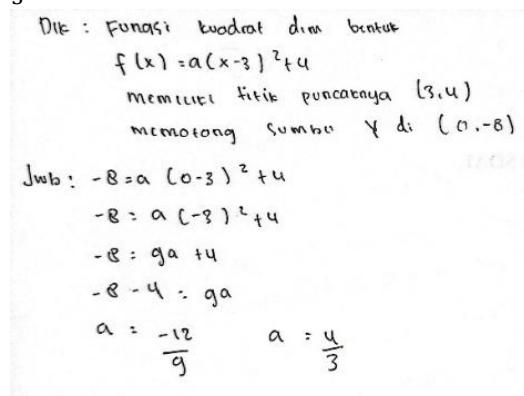 Dik : Fungsi kuadrat dlm bentuk
f(x) = a(x-3)²+4
memiliki titik puncaknya (3,4)
memotong sumbu Y di (0,-8)
Jwb : -8 = a (0-3)² +4
-8 = a (-3)² +4
-8 = 9a +4
-8 - 4 = 9a
a = -12/9 a = 4/3